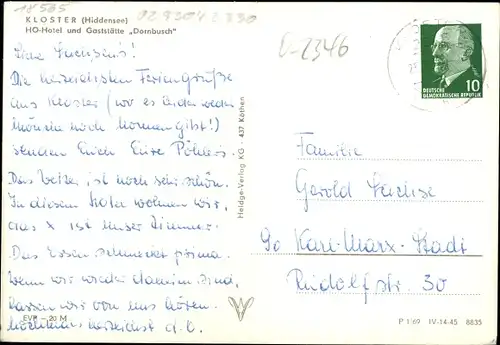 18585
0293042330
KLOSTER (Hiddensee)
HO-Hotel und Gaststätte „Dornbusch"
O-2346
Liebe Sachsen's!
Die herzlichsten Feriengrüße
aus Kloster (wo es leider weder
Mönche noch Nonnen gibt!)
senden Euch Eure Pöhlers.
Das Wetter ist noch sehr schön.
In diesem Hotel wohnen wir,
das x ist unser Zimmer.
Das Essen schmeckt prima.
Wenn wir wieder daheim sind,
lassen wir von uns hören.
Nochmals herzlichst d. O.
EVP - 20 M
Heldge-Verlag KG - 437 Köthen
10
DEUTSCHE
DEMOKRATISCHE REPUBLIK
Familie
Gerold Sachse
90 Karl-Marx-Stadt
Rudolfstr. 30
P 1/69 IV-14-45 8835